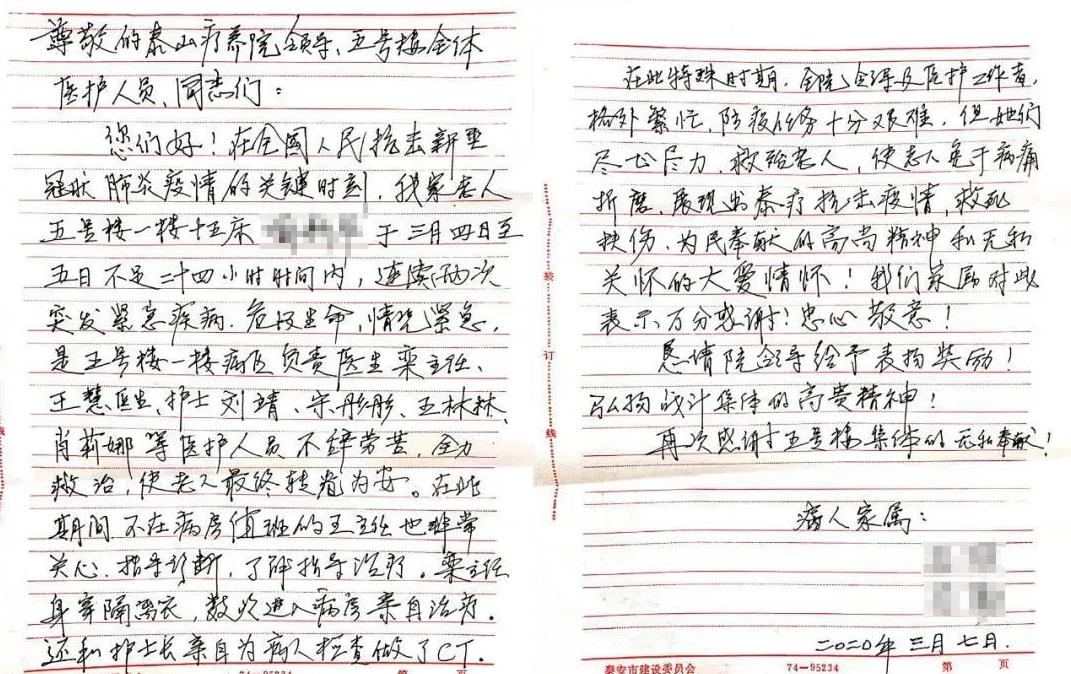 尊敬的泰山疗养院领导、五号楼全体
医护人员、同志们：
您们好！在全国人民抗击新型
冠状肺炎疫情的关键时刻，我家老人
五号楼一楼十五床 于三月四日至
五日不足二十四小时时间内，连续两次
突发紧急疾病．危及生命，情况紧急，
是五号楼一楼病区负责医生栾主任、
王慧医生、护士刘靖、宋彤彤、王林林、
肖莉娜等医护人员不辞劳苦，全力
救治，使老人最终转危为安。在此
期间．不在病房值班的王主任也非常
关心．指导诊断，了解指导治疗。栾主任
身穿隔离衣，数次进入病房亲自治疗。
还和护士长亲自为病人检查做了CT．
在此特殊时期．全院领导及医护工作者，
格外繁忙．防疫任务十分艰难．但她们
尽心尽力．救治老人，使老人免于病痛
折磨．展现出泰疗抗击疫情，救死
扶伤．为民奉献的高尚精神和无私
关怀的大爱情怀！我们家属对此
表示万分感谢！忠心敬意！
恳请院领导给予表扬奖励！
弘扬战斗集体的高贵精神！
再次感谢五号楼集体的无私奉献！
病人家属：
二〇二〇年三月七日．
装
订
线
74—95234 第 页
泰安市建设委员会 74—95234 第 页